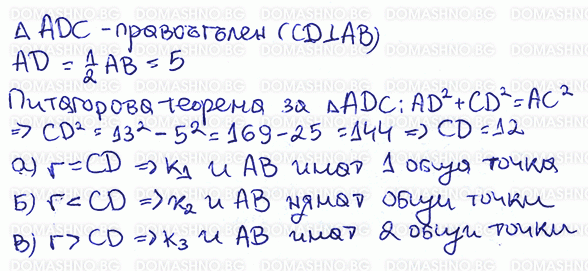 Δ ADC - правоъгълен (CD⊥AB)
AD = 1/2 AB = 5
Питагорова теорема за ΔADC: AD² + CD² = AC²
=> CD² = 13² - 5² = 169 - 25 = 144 => CD = 12
а) r = CD => k₁ и AB имат 1 обща точка
Б) r < CD => k₂ и AB нямат общи точки
В) r > CD => k₃ и AB имат 2 общи точки